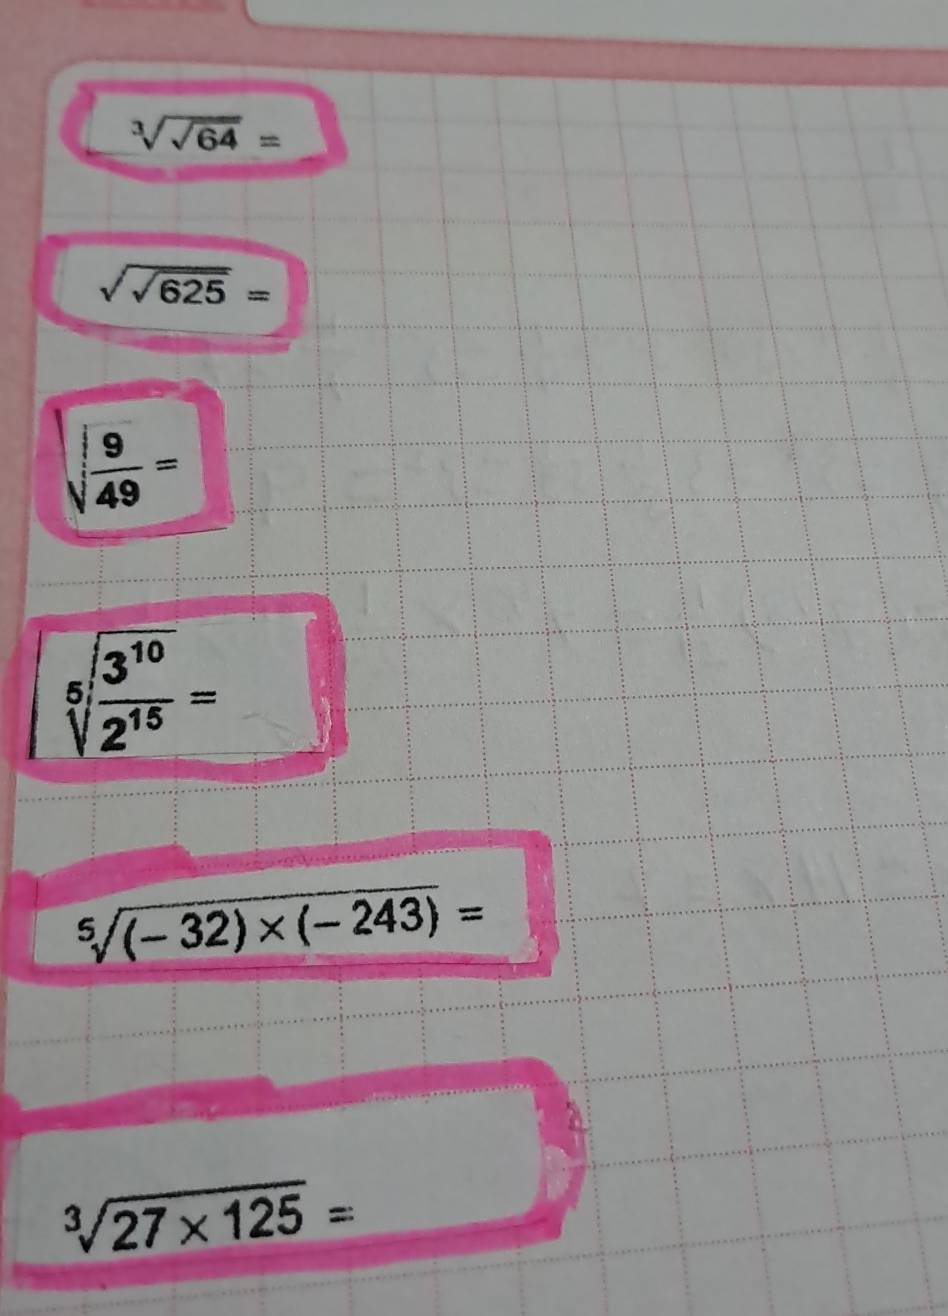 ∛√64 =
√√625 =
√(9/49) =
⁵√(3¹⁰/2¹⁵) =
⁵√(−32)×(−243) =
³√27×125 =